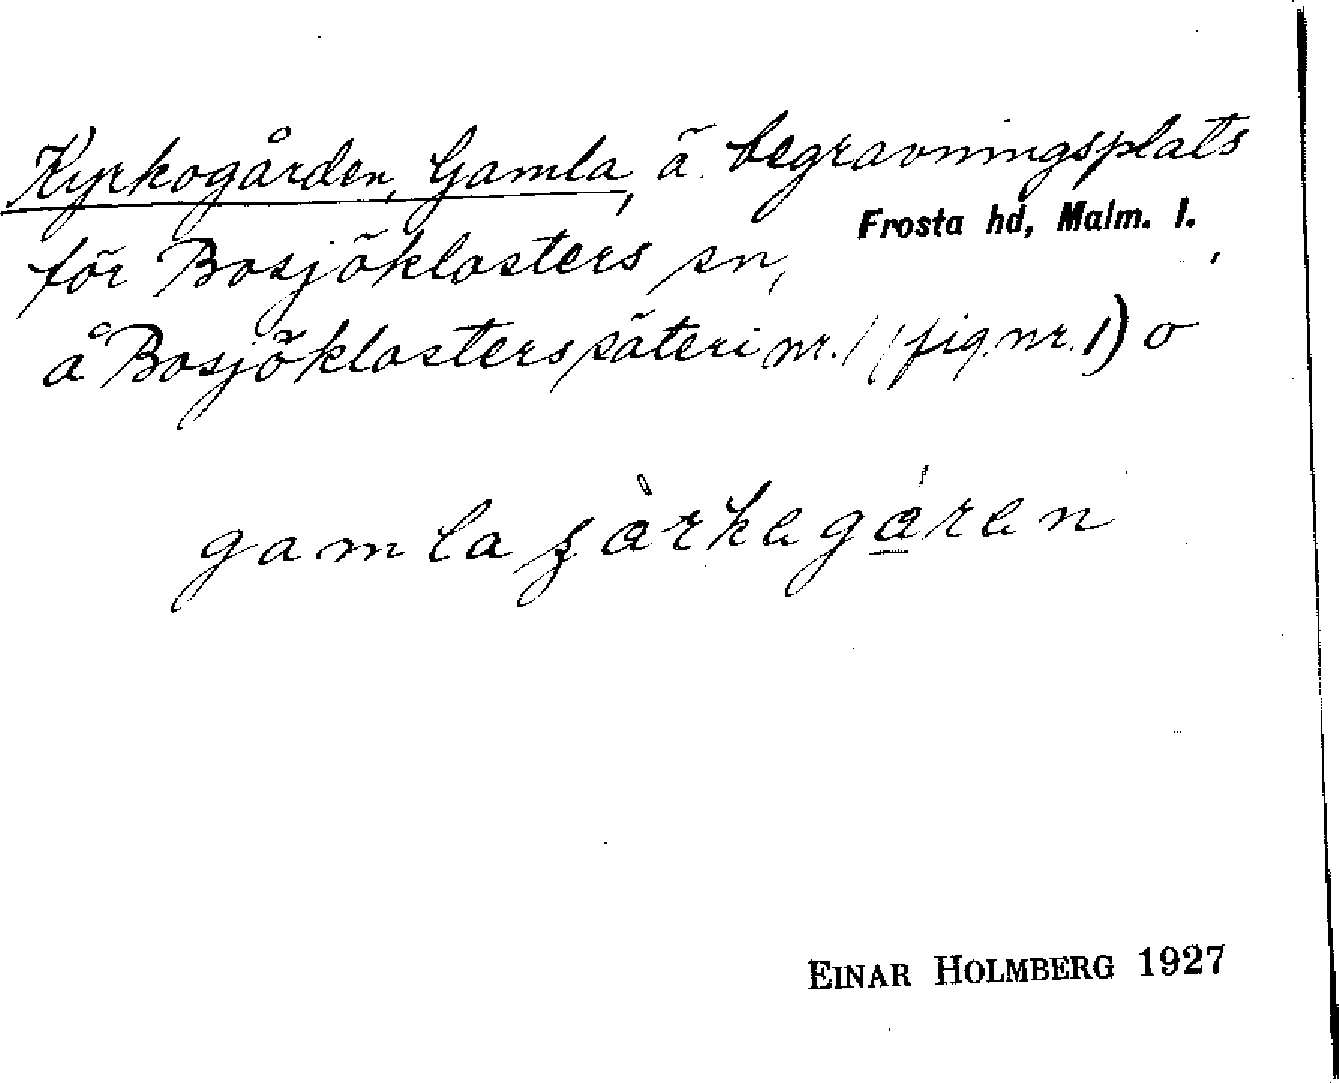 Kyrkogården, Gamla, ä. begravningsplats
för Bosjöklosters sn, Frosta hd, Malm. l.
å Bosjöklosters säteri nr. 1 (fig. nr. 1) o
gamla
EINAR HOLMBERG 1927